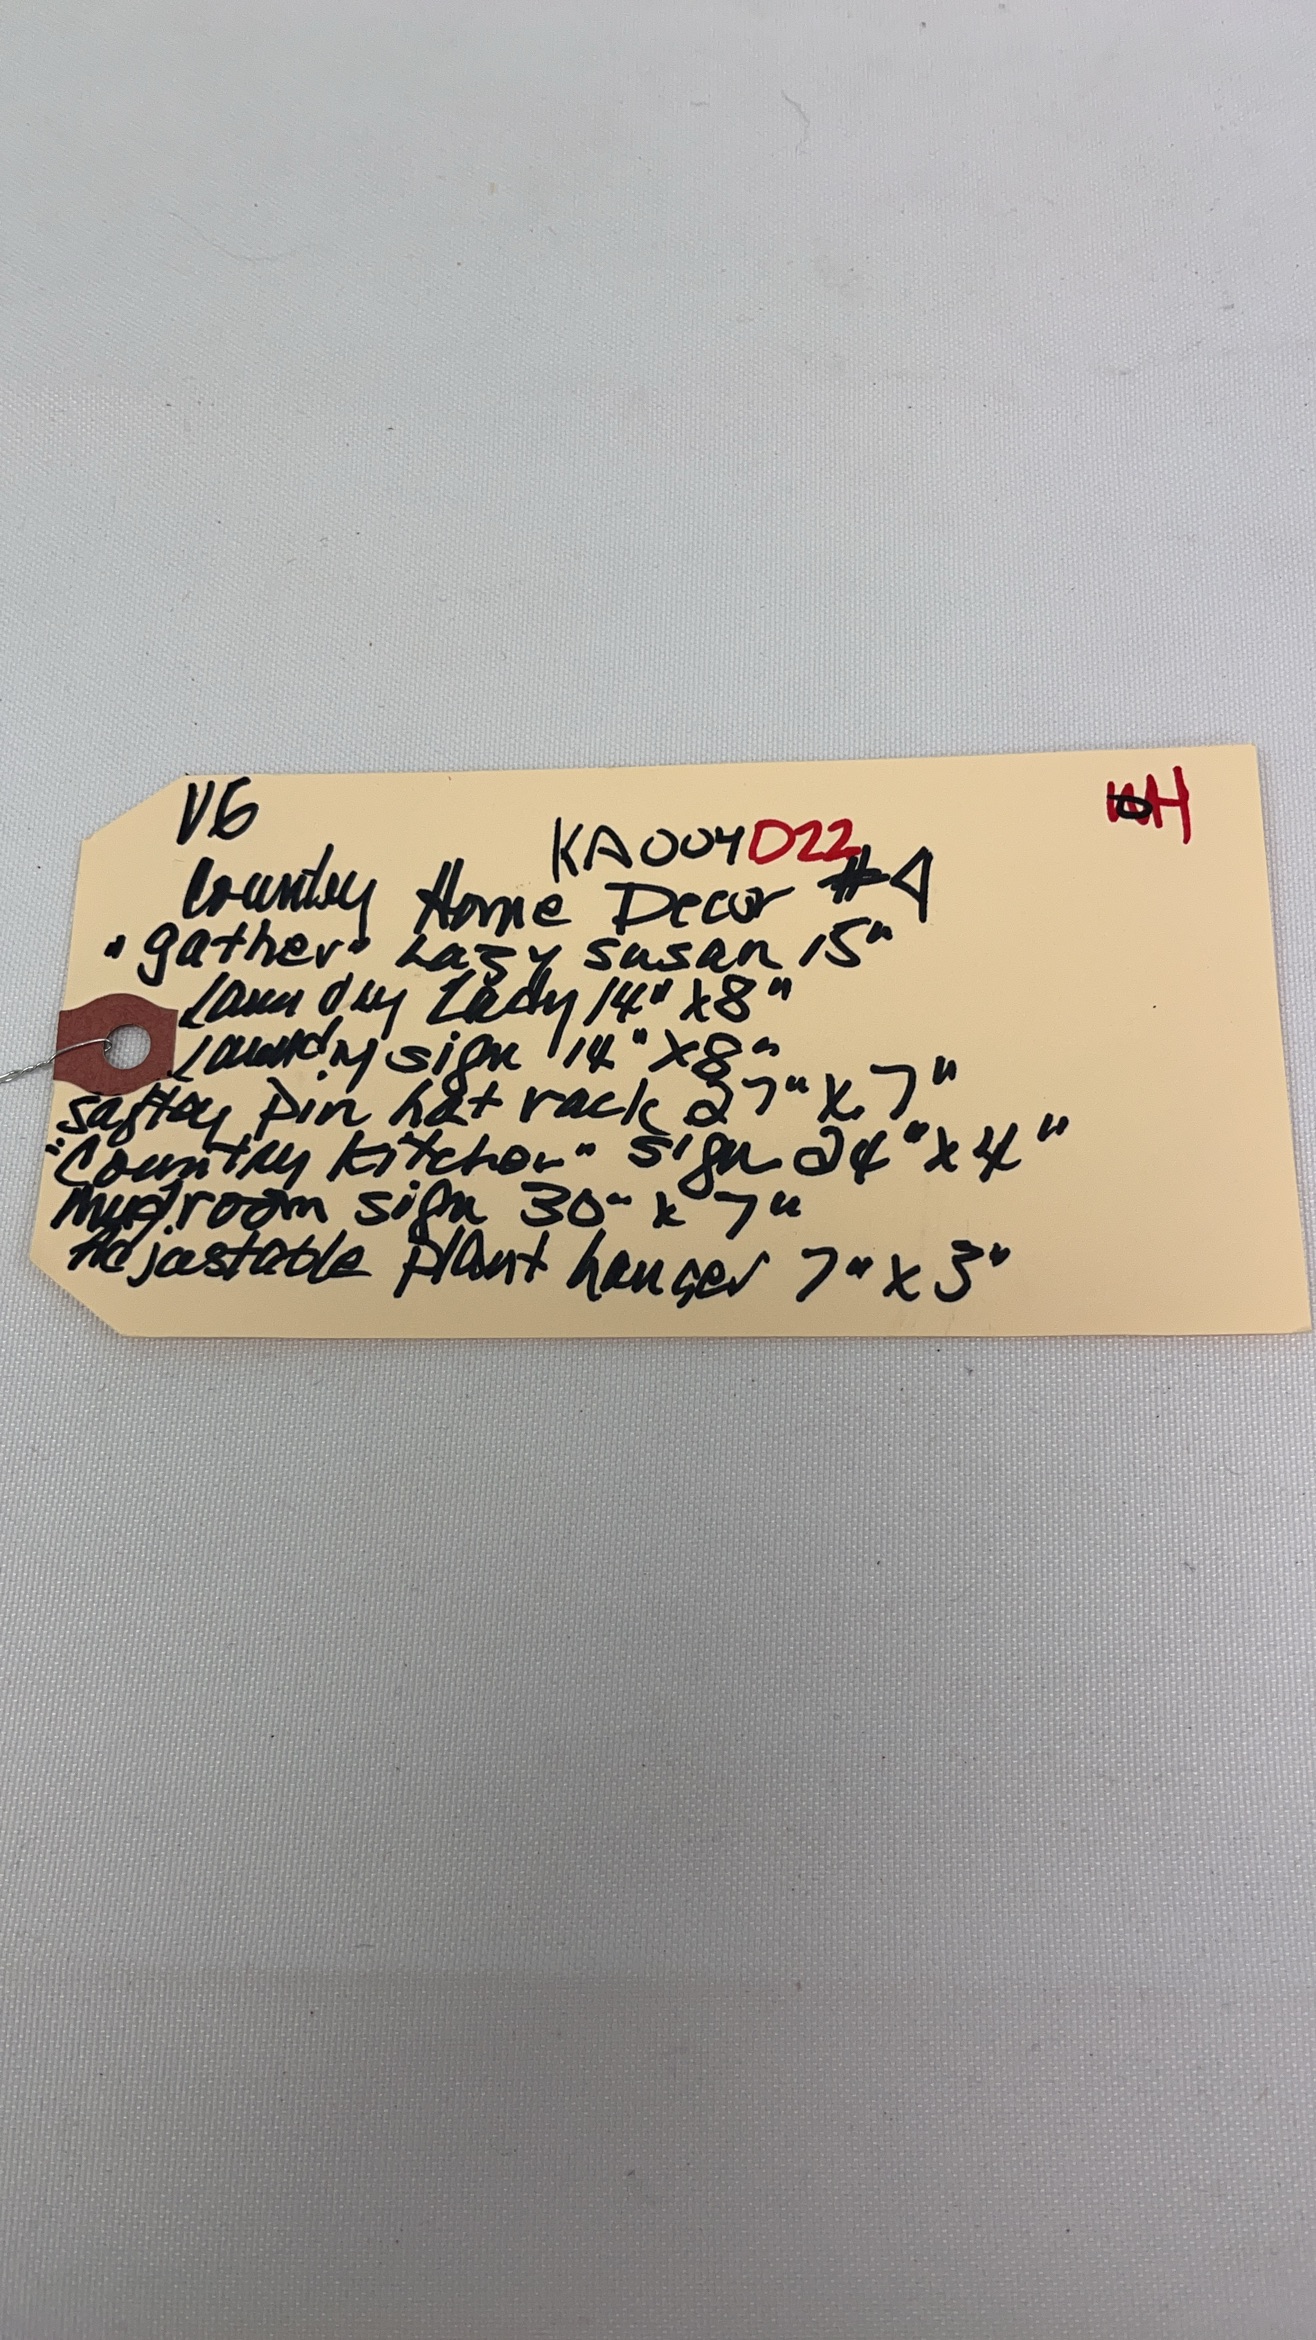 VG
KA004D22
Country Home Decor #4
"gather" Lazy susan 15"
Laundry Lady 14" x 8"
Laundry sign 14" x 8"
saftey pin hat rack 27" x 7"
"Country kitchen" sign 24" x 4"
mudroom sign 30" x 7"
Adjustable plant hanger 7" x 3"